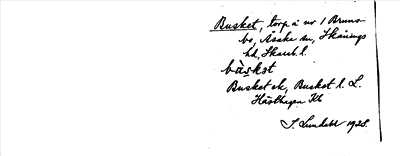 Busket, torp å nr 1 Bruns-
bo, Åsaka sn, Skånings
hd, Skarab. l.
bàskət
Busket ek, Busket l. L.
Hästhagen Kh
J. Lundahl 1928.